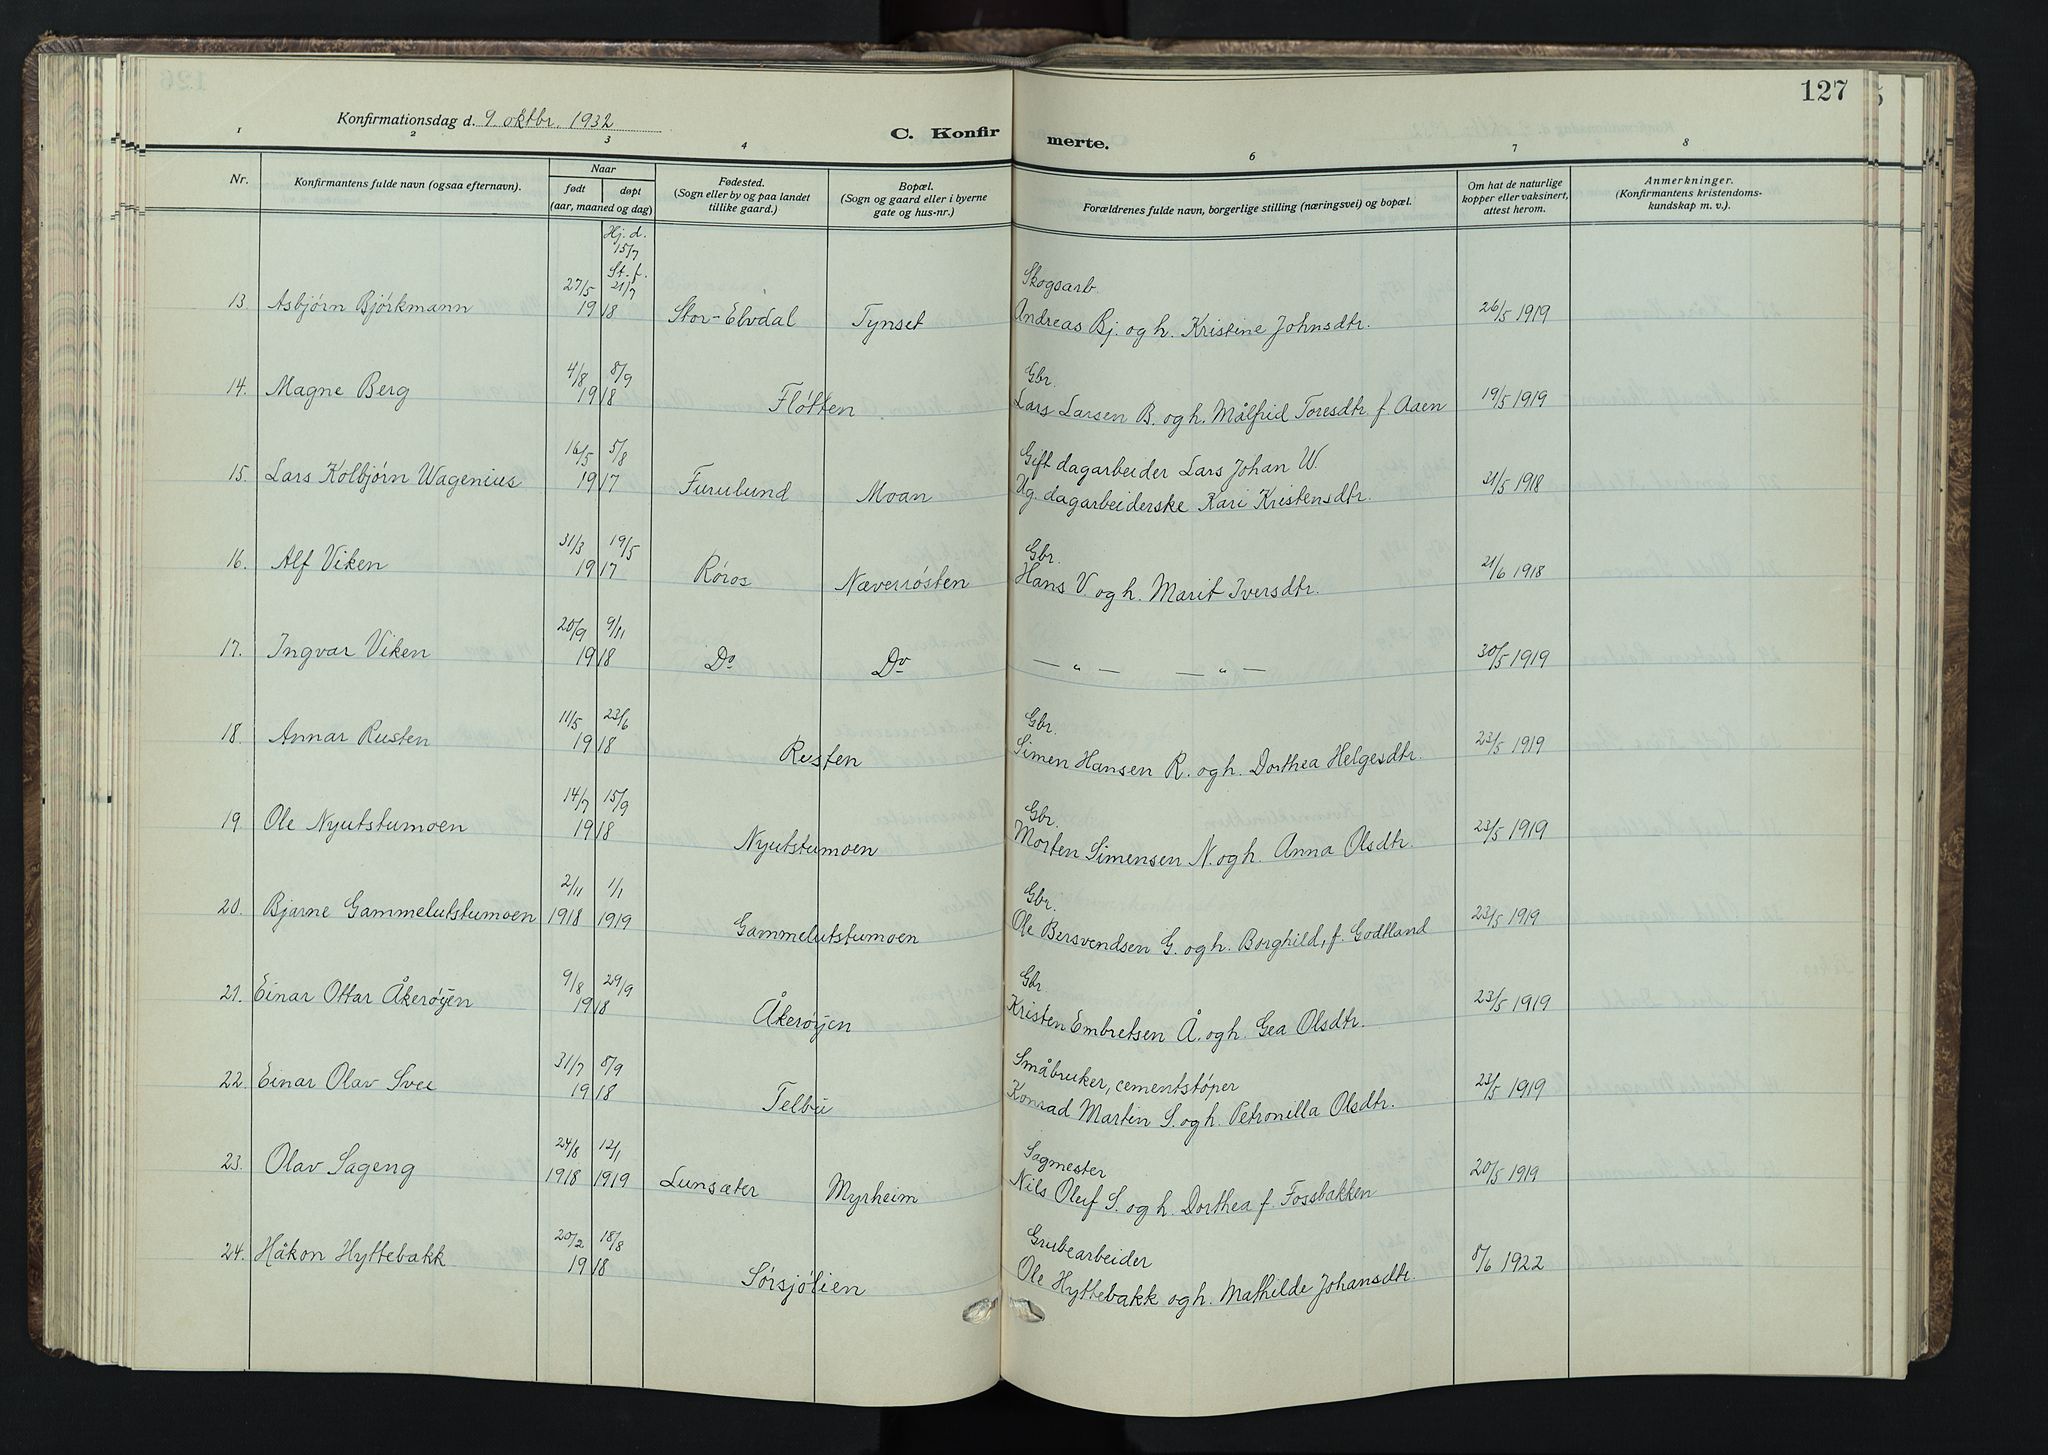 127
Konfirmationsdag d. 9. oktbr. 1932
C. Konfirmerte.
1 2 3 4 6 7 8
Nr. Konfirmantens fulde navn (ogsaa efternavn). Naar født døpt (aar, maaned og dag) Fødested. (Sogn eller by og paa landet tillike gaard.) Bopæl. (Sogn og gaard eller i byerne gate og hus-nr.) Forældrenes fulde navn, borgerlige stilling (næringsvei) og bopæl. Om hat de naturlige kopper eller vaksinert, attest herom. Anmerkninger. (Konfirmantens kristendomskundskap m. v.).
Hj. d.
15/7
St. f.
27/5 21/7 Skogsarb.
13. Asbjørn Bjørkmann 1918 Stor-Elvdal Tynset Andreas Bj. og h. Kristine Johnsdtr. 26/5 1919
4/8 8/9 Gbr.
14. Magne Berg 1918 Fløtten Lars Larsen B. og h. Målfrid Toresdtr. f. Aaen 19/5 1919
16/5 5/8 Gift dagarbeider Lars Johan W.
15. Lars Kolbjørn Wagenius 1917 Furulund Moan Ug. dagarbeiderske Kari Kristensdtr. 31/5 1918
31/3 19/5 Gbr.
16. Alf Viken 1917 Røros Næverrøsten Hans V. og h. Marit Iversdtr. 21/6 1918
20/9 9/11
17. Ingvar Viken 1918 Do Do — „ — — „ — 30/5 1919
11/5 23/6 Gbr.
18. Annar Rusten 1918 Rusten Simen Hansen R. og h. Dorthea Helgesdtr. 23/5 1919
14/7 15/9 Gbr.
19. Ole Nyutstumoen 1918 Nyutstumoen Morten Simensen N. og h. Anna Olsdtr. 23/5 1919
2/11 1/1 Gbr.
20. Bjarne Gammelutstumoen 1918 1919 Gammelutstumoen Ole Bersvendsen G. og h. Borghild, f. Godtland 23/5 1919
9/8 29/9 Gbr.
21. Einar Ottar Åkerøyen 1918 Åkerøyen Kristen Embretsen Å. og h. Gea Olsdtr. 23/5 1919
31/7 8/9 Småbruker, cementstøper
22. Einar Olav Svee 1918 Telbu Konrad Martin S. og h. Petronilla Olsdtr. 23/5 1919
24/8 12/1 Sagmester
23. Olav Sageng 1918 1919 Lunsæter Myrheim Nils Oluf S. og h. Dorthea f. Fossbakken 20/5 1919
20/2 18/8 Grubearbeider
24. Håkon Hyttebakk 1918 Sørsjølien Ole Hyttebakk og h. Mathilde Johansdtr. 8/6 1922